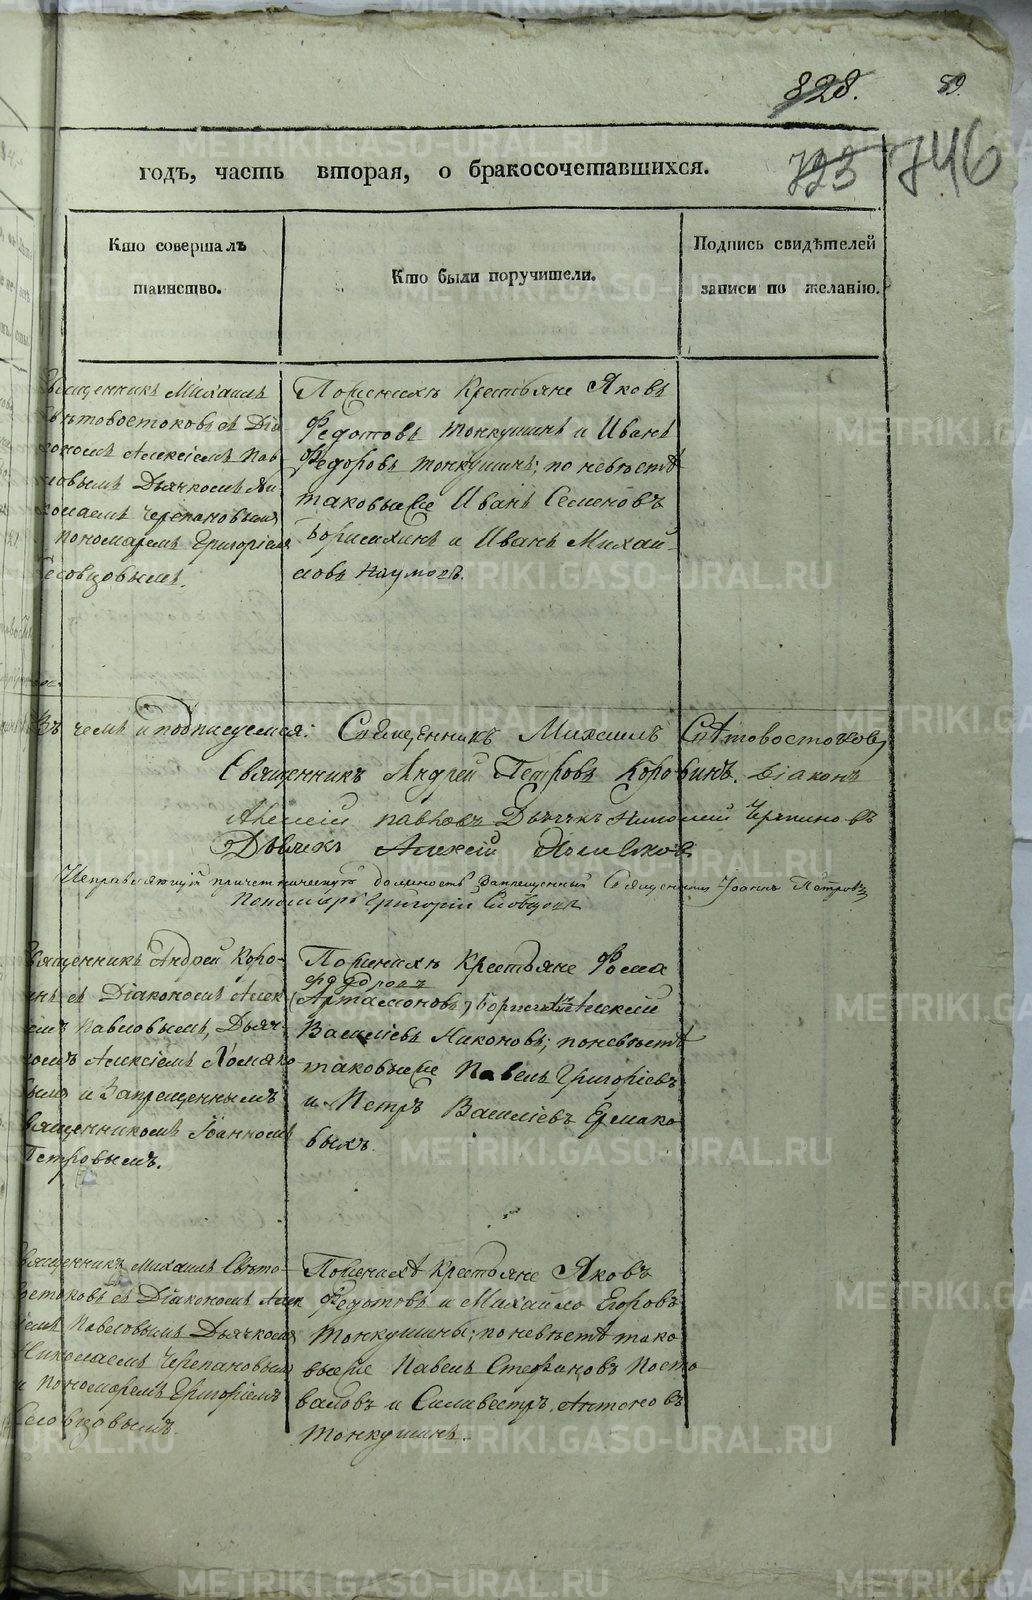 828.
89.
723
746
годъ, часть вторая, о бракосочетавшихся.
Кто совершалъ
таинство.
Кто были поручители.
Подпись свидѣтелей
записи по желанію.
Священникъ Михаилъ
Свѣтовостоковъ съ Діа
кономъ Алексіемъ Пав
ловымъ Дьячкомъ Ни
колаемъ Черепановымъ
Пономаремъ Григоріемъ
Словцовымъ.
По женихѣ Крестьяне Яковъ
Федотовъ Тонкушинъ и Иванъ
Федоровъ Тонкушинъ; по невѣстѣ
таковыеже Иванъ Семеновъ
Борисихинъ и Иванъ Михай-
ловъ Наумовъ.
Въ чемъ и подписуемся: Священникъ Михаилъ Свѣтовостоковъ
Священникъ Андрей Петровъ Коровинъ. Діаконъ
Алексій Павловъ Дьячекъ Николай Черепановъ
Дьячекъ Алексій Хомяковъ
Исправляющій причетническую должность Запрещенный Священникъ Іоаннъ Петровъ
Пономарь Григорій Словцовъ
Священникъ Андрей Коро-
инъ съ Діакономъ Алек
іемъ Павловымъ, Дьяч-
комъ Алексіемъ Хомяко
вымъ и Запрещеннымъ
Священникомъ Іоанномъ
Петровымъ.
По женихѣ Крестьяне Фома
Федоровъ
Артамоновъ, Алексій
Василіевъ Никоновъ; по невѣстѣ
таковыеже Павелъ Григоріевъ
и Петръ Василіевъ Ермако
выхъ.
Священникъ Михаилъ Свѣто-
востоковъ съ Діакономъ Алек
іемъ Павловымъ Дьячкомъ
Николаемъ Черепановымъ
и Пономаремъ Григоріемъ
Словцовымъ.
По женихѣ Крестьяне Яковъ
Федотовъ и Михайло Егоровъ
Тонкушины; по невѣстѣ тако
выеже Павелъ Стефановъ Посто
валовъ и Силивестръ Антоновъ
Тонкушинъ.
METRIKI.GASO-URAL.RU